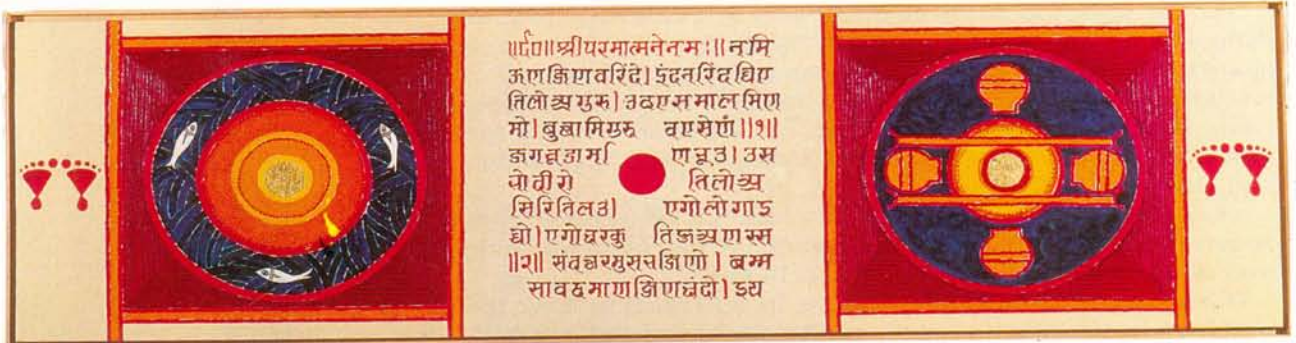 ॥र्द०॥श्रीपरमात्मनेनमः॥नमि
ऊणजिणवरिंदे।इंदनरिंदच्चिए
तिलोअगुरू।उवएसमालमिण
मो।वुच्छामिगुरु वएसेणं॥१॥
जगचूडामणि भूओ।उस
भोवीरो तिलोअ
सिरितिलओ। एगोलोगाइ
च्चो।एगोचरकु तिहुअणस्स
॥२॥संवच्छरमुसभजिणो।छम्म
सावद्धमाणजिणचंदो।इय